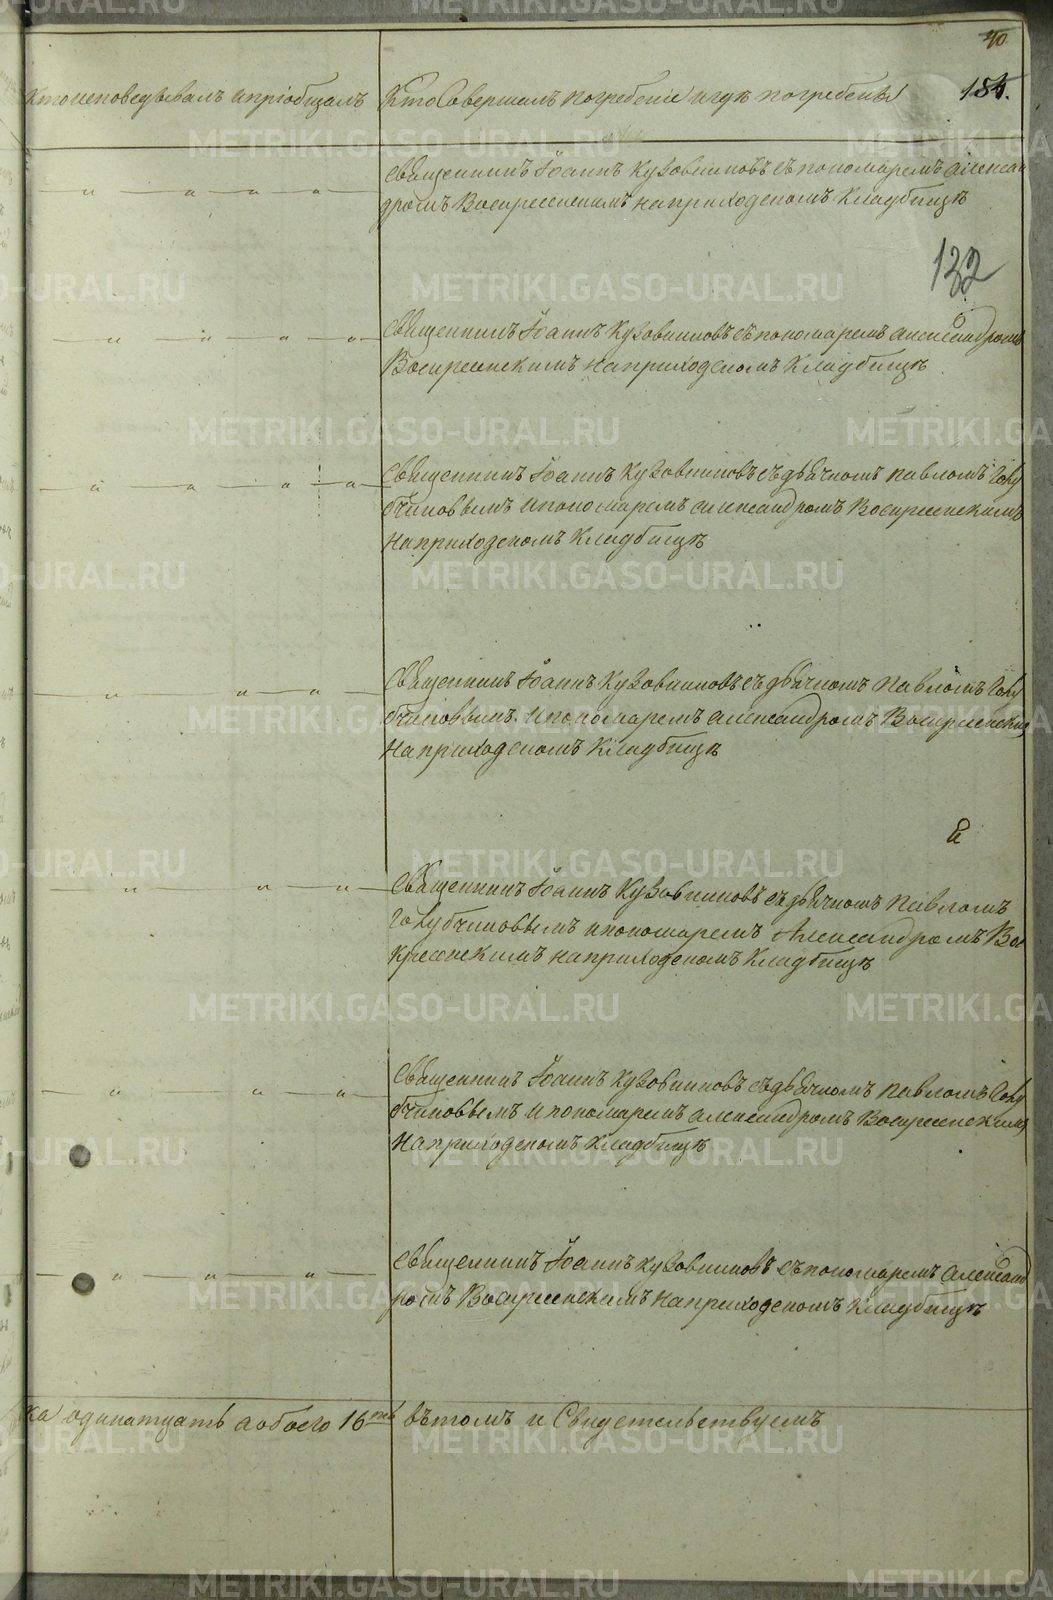 40
Кто исповедывалъ и пріобщалъ
Кто Совершалъ погребеніе и гдѣ погребены
184.
Священникъ Іоаннъ Кузовниковъ съ пономаремъ Алексан
дромъ Воскресенскимъ на приходскомъ Кладбищѣ
132
Священникъ Іоаннъ Кузовниковъ съ пономаремъ Александромъ
Воскресенскимъ на приходскомъ Кладбищѣ
Священникъ Іоаннъ Кузовниковъ съ дьячкомъ Павломъ Голу
бчиковымъ и пономаремъ Александромъ Воскресенскимъ
на приходскомъ Кладбищѣ
Священникъ Іоаннъ Кузовниковъ съ дьячкомъ Павломъ Голу
бчиковымъ и пономаремъ Александромъ Воскресенским
на приходскомъ Кладбищѣ
Священникъ Іоаннъ Кузовниковъ съ дьячкомъ Павломъ
Голубчиковымъ и пономаремъ Александромъ Вос
кресенскимъ на приходскомъ Кладбищѣ
Священникъ Іоаннъ Кузовниковъ съ дьячкомъ Павломъ Голу
бчиковымъ и пономаремъ Александромъ Воскресенскимъ
на приходскомъ Кладбищѣ
Священникъ Іоаннъ Кузовниковъ съ пономаремъ Александ
ромъ Воскресенскимъ на приходскомъ Кладбищѣ
ка одинатцать а обоего 16ть въ томъ и Свидетельствуемъ
METRIKI.GASO-URAL.RU